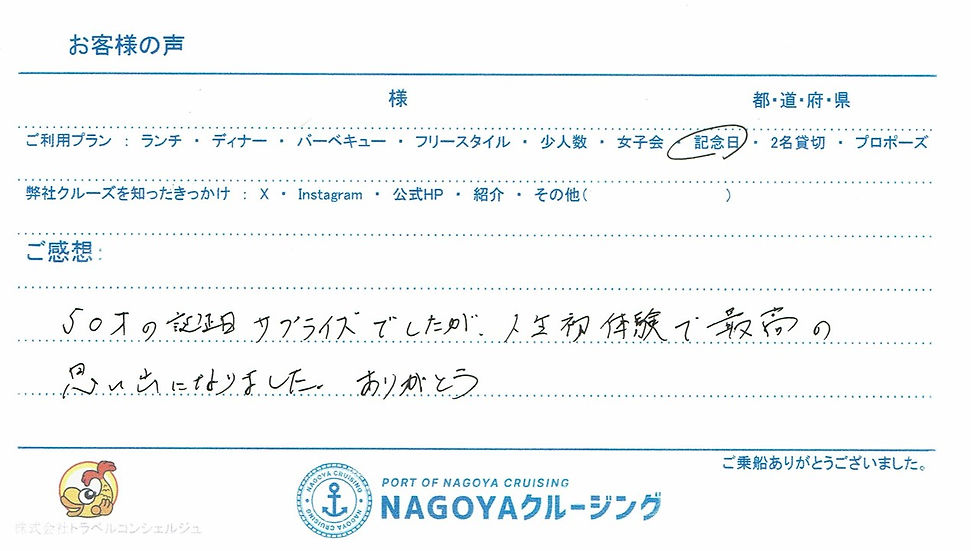 お客様の声
様 都・道・府・県
ご利用プラン : ランチ ・ ディナー ・ バーベキュー ・ フリースタイル ・ 少人数 ・ 女子会 ・ 記念日 ・ 2名貸切 ・ プロポーズ
弊社クルーズを知ったきっかけ : X ・ Instagram ・ 公式HP ・ 紹介 ・ その他( )
ご感想:
50才の誕生日サプライズでしたが、人生初体験で最高の
思い出になりました。ありがとう
ご乗船ありがとうございました。
株式会社トラベルコンシェルジュ
NAGOYA CRUISING
NAGOYA CRUISING
PORT OF NAGOYA CRUISING
NAGOYAクルージング